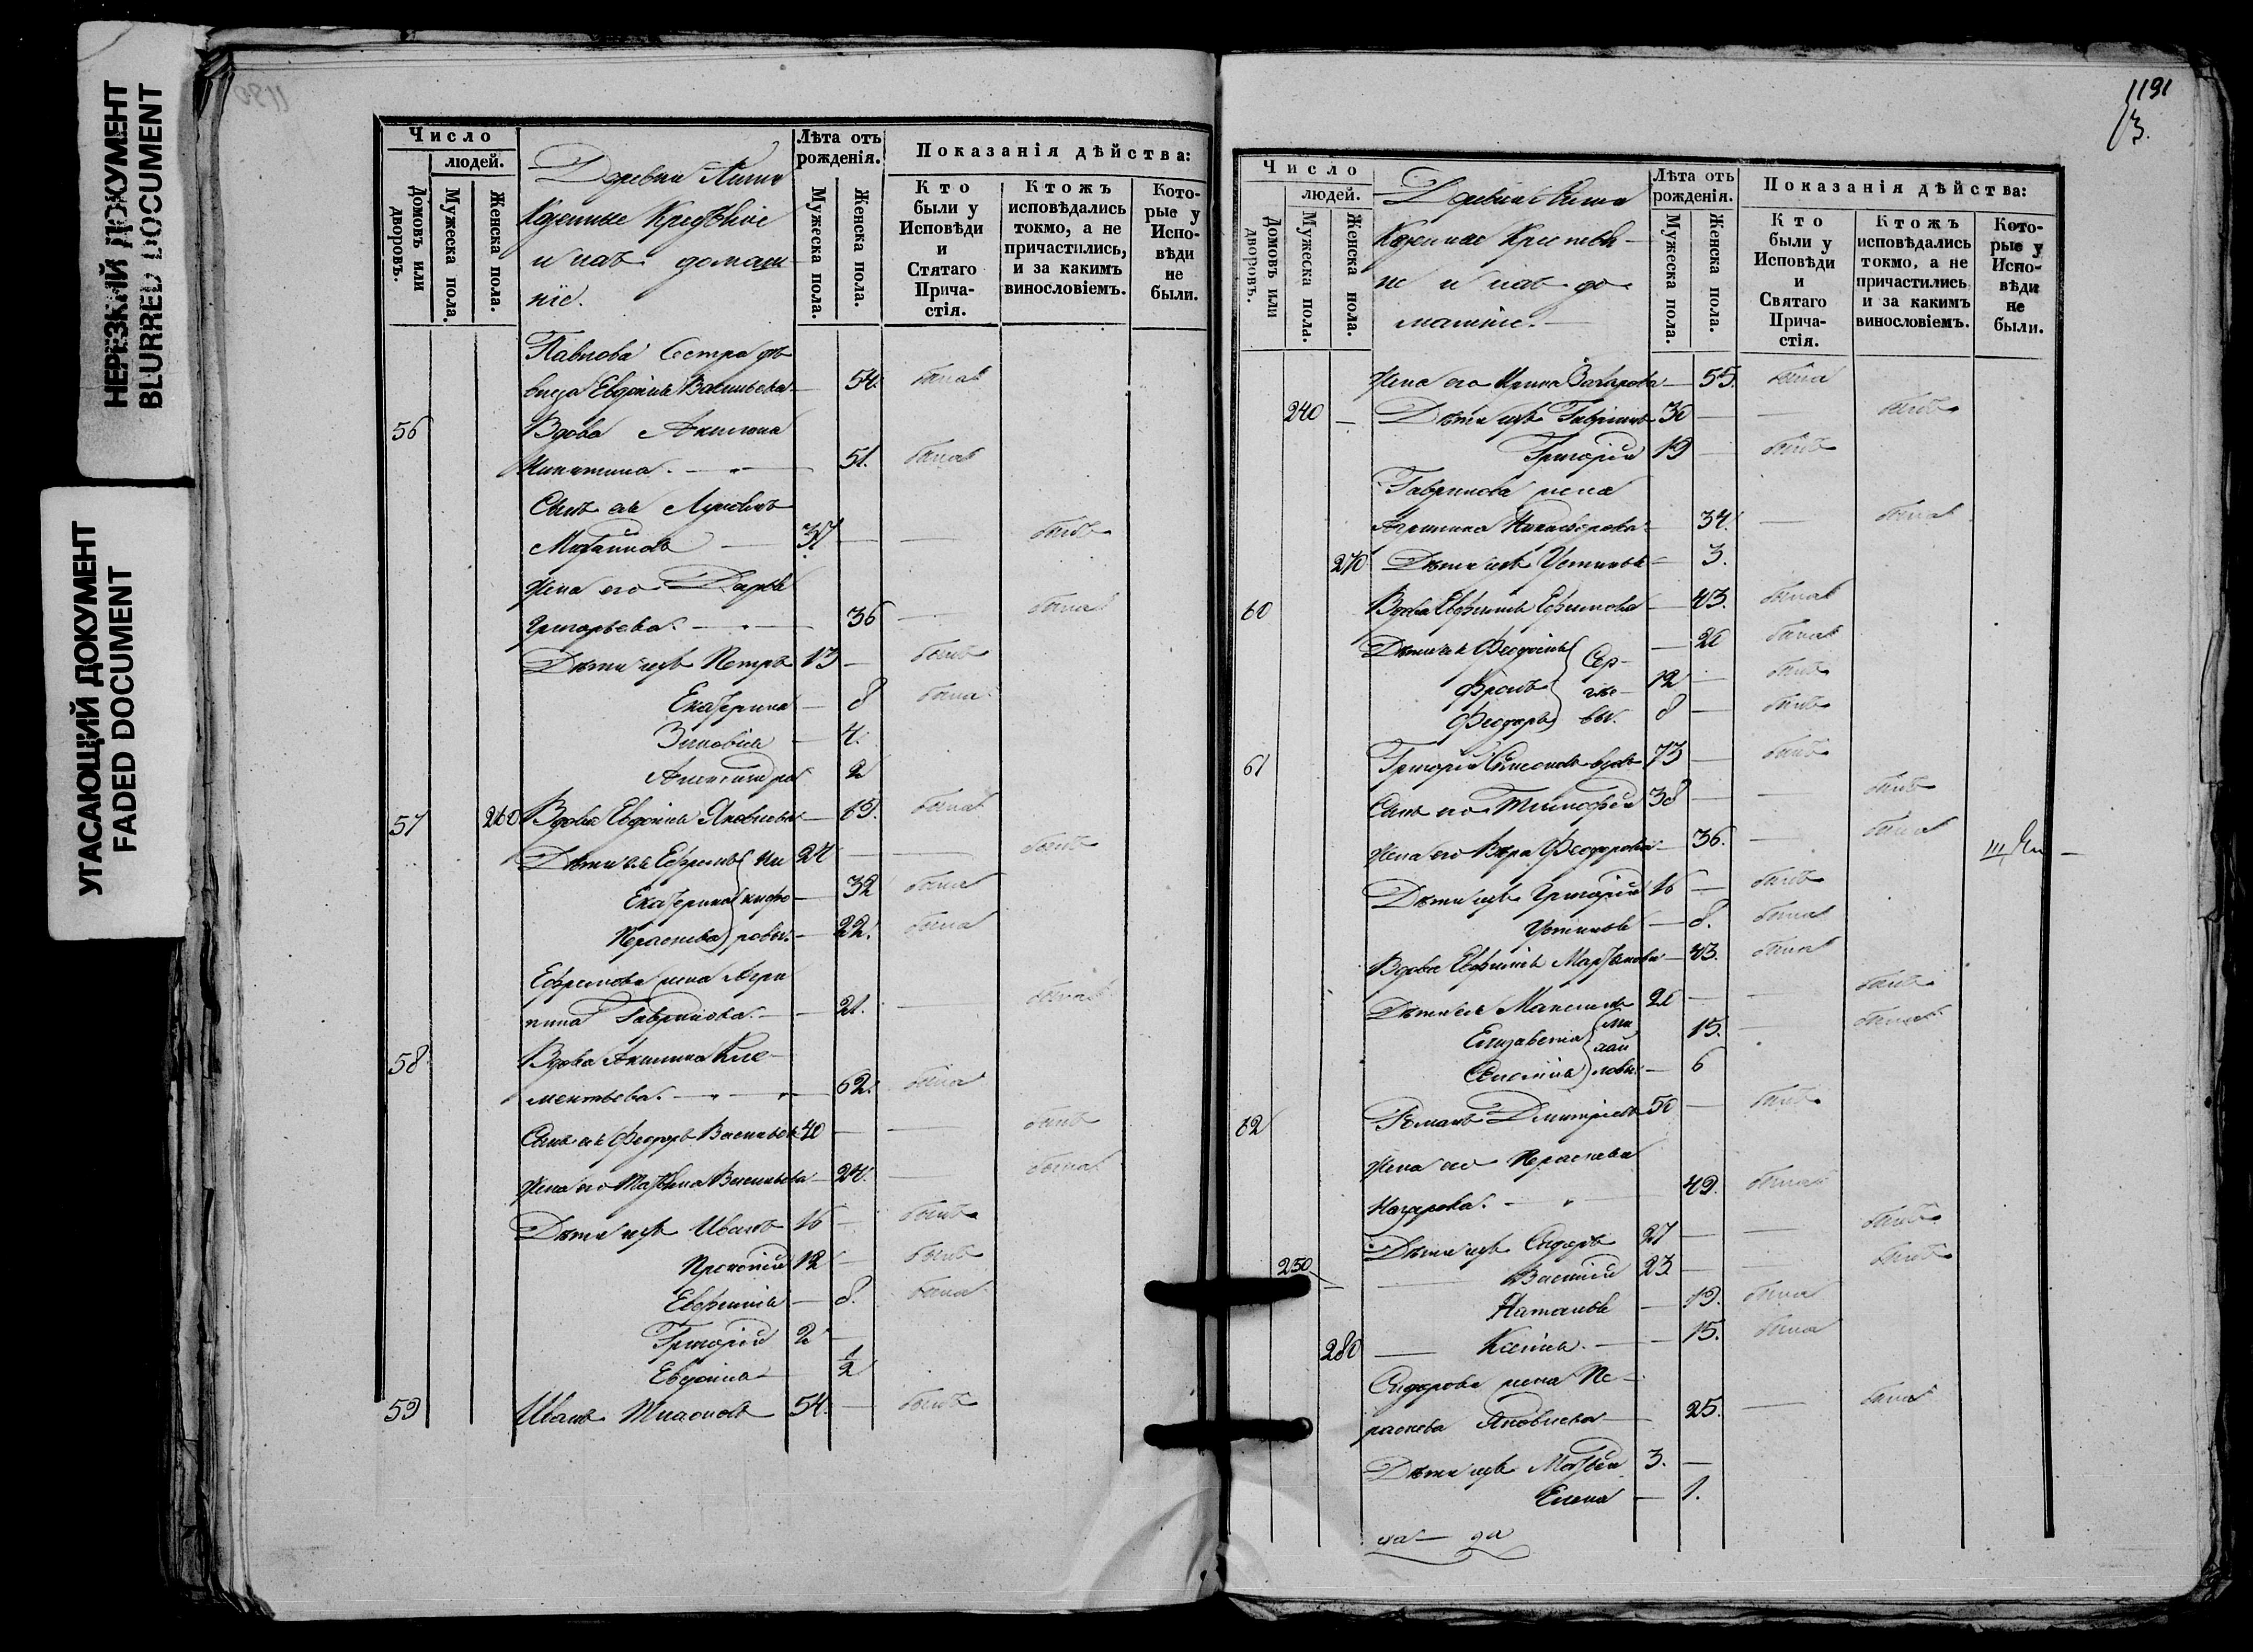 НЕРЕЗКИЙ ДОКУМЕНТ
BLURRED DOCUMENT
УГАСАЮЩИЙ ДОКУМЕНТ
FADED DOCUMENT
Число
людей.
Домовъ или дворовъ.
Мужеска пола.
Женска пола.
Деревни
и ихъ домаш-
ніе.
Лѣта отъ
рожденія.
Мужеска пола.
Женска пола.
Показанія дѣйства:
Кто
были у
Исповѣди
и
Стятаго
Прича-
стія.
Ктожъ
исповѣдались
токмо, а не
причастились,
и за какимъ
винословіемъ.
Кото-
рые у
Испо-
вѣди
не
были.
Павлова Сестра дѣ-
вица Евдокія Васильева — 54. была
56 Вдова Акилина
Никитина. — 51. была
Сынъ ея
Михайловъ — 37 — — былъ
Жена его Дарья
Григорьева. — 36 — была
Дѣти ихъ Петръ 13 — былъ
Екатерина — 8 была
Зиновія — 4.
Александра 2
57 260 Вдова Евдокія Яковлева — была
Дѣти ея Ефремъ Ни 24 — — былъ
Екатерина кифо — 32 была
Параскева ровы. — 22. была
Ефремова жена Агри
пина Гаврилова. — 21. — была
58 Вдова Акилина Кле-
ментьева. — 62. была
Сынъ ея Феодоръ Васильевъ 40 — — былъ
Жена его Васильева — 24. — была
Дѣти ихъ Иванъ 16 — былъ
Прокопій 12 — былъ
Евфимія — 8. была
Григорій 2 —
Евдокія 1/2
59 Иванъ 54. — былъ
1191
3.
Число
людей.
Домовъ или дворовъ.
Мужеска пола.
Женска пола.
Деревни
не и ихъ до-
машніе. —
Лѣта отъ
рожденія.
Мужеска пола.
Женска пола.
Показанія дѣйства:
Кто
были у
Исповѣди
и
Святаго
Прича-
стія.
Ктожъ
исповѣдались
токмо, а не
причастились
и за какимъ
винословіемъ.
Кото-
рые у
Испо-
вѣди
не
были.
Жена его Ирина Захарова — 55. была
240 — Дѣти ихъ Гавріилъ 30 — — былъ
Григорій 19 — былъ
Гаврилова жена
Акилина Никифорова — 34. — была
270 Дѣти ихъ Устинья — 3.
60 Вдова Евфимія Ефимова — 43. была
Дѣти ея Феодосія Сер- — 20 была
Фролъ гѣе- 12 — былъ
Феодоръ вы. 8 — былъ
61 Григорій вдовъ 73 — былъ
Сынъ его Тимофей 38 — — былъ
Жена его Вѣра Феодорова — 36. — была
Дѣти ихъ Григорій 16 — былъ
Устинья — 8. была
Вдова Евфимія — 43. была
Дѣти ея Максимъ 20 — — былъ
Елизавета Ми 15. — была
хай
ловы. — 6
62 Романъ Димитріевъ 50 — былъ
Жена его Параскева
Назарова. — 49. была
Дѣти ихъ Сидоръ 27 — — былъ
250 — Василій 23 — — былъ
Наталья — 19. была
280 — Ксенія. — 15. была
Сидорова жена Па-
раскева Яковлева — 25. — была
Дѣти ихъ Матвей 3. —
Елена — 1.